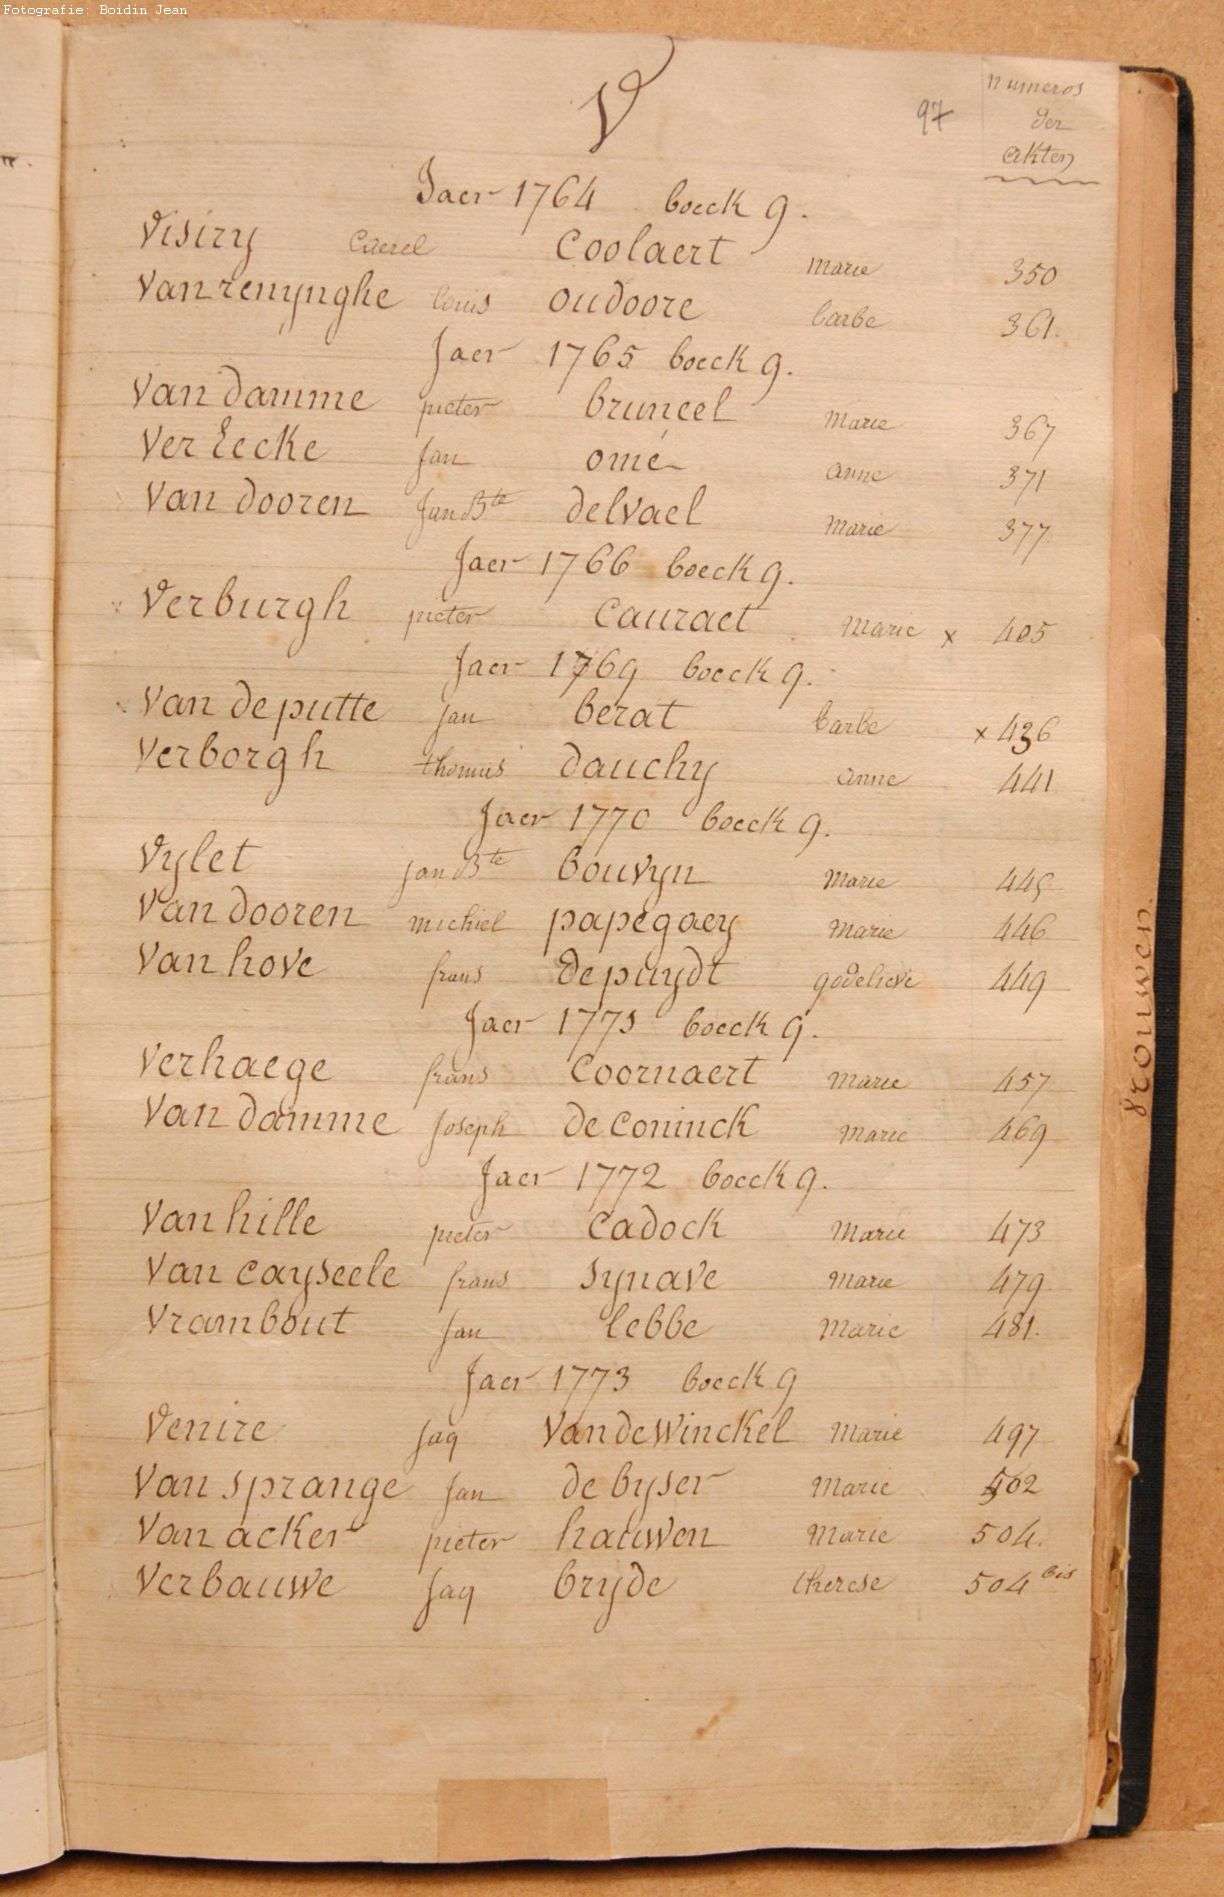 Fotografie: Boidin Jean
V
97
numeros
der
akten
Jaer 1764 boeck 9.
Visiry Caerel Coolaert marie 350
Van renynghe louis oudoore barbe 361.
Jaer 1765 boeck 9.
Van damme pieter bruneel marie 367
Ver Eecke jan omé anne 371
Van dooren jan Bte delvael marie 377
Jaer 1766 boeck 9.
Verburgh pieter Cauraet marie x 405
Jaer 1769 boeck 9.
Van de putte jan berat barbe x 436
Verborgh thomis dauchy anne 441
Jaer 1770 boeck 9.
Vylet jan Bte bouvyn marie 445
Van dooren michiel papegaey marie 446
Van hove frans depuydt godelieve 449
Jaer 1771 boeck 9.
Verhaege frans Coornaert marie 457
Van damme joseph de Coninck marie 469
Jaer 1772 boeck 9.
Van hille pieter Cadock marie 473
Van Cayseele frans synave marie 479
Vrambout jan lebbe marie 481.
Jaer 1773 boeck 9
Venire jaq Van de Winckel marie 497
Van sprange jan de byser marie 502
Van acker pieter hauwen marie 504.
Verbauwe jaq bryde therese 504 bis
vrouwen.